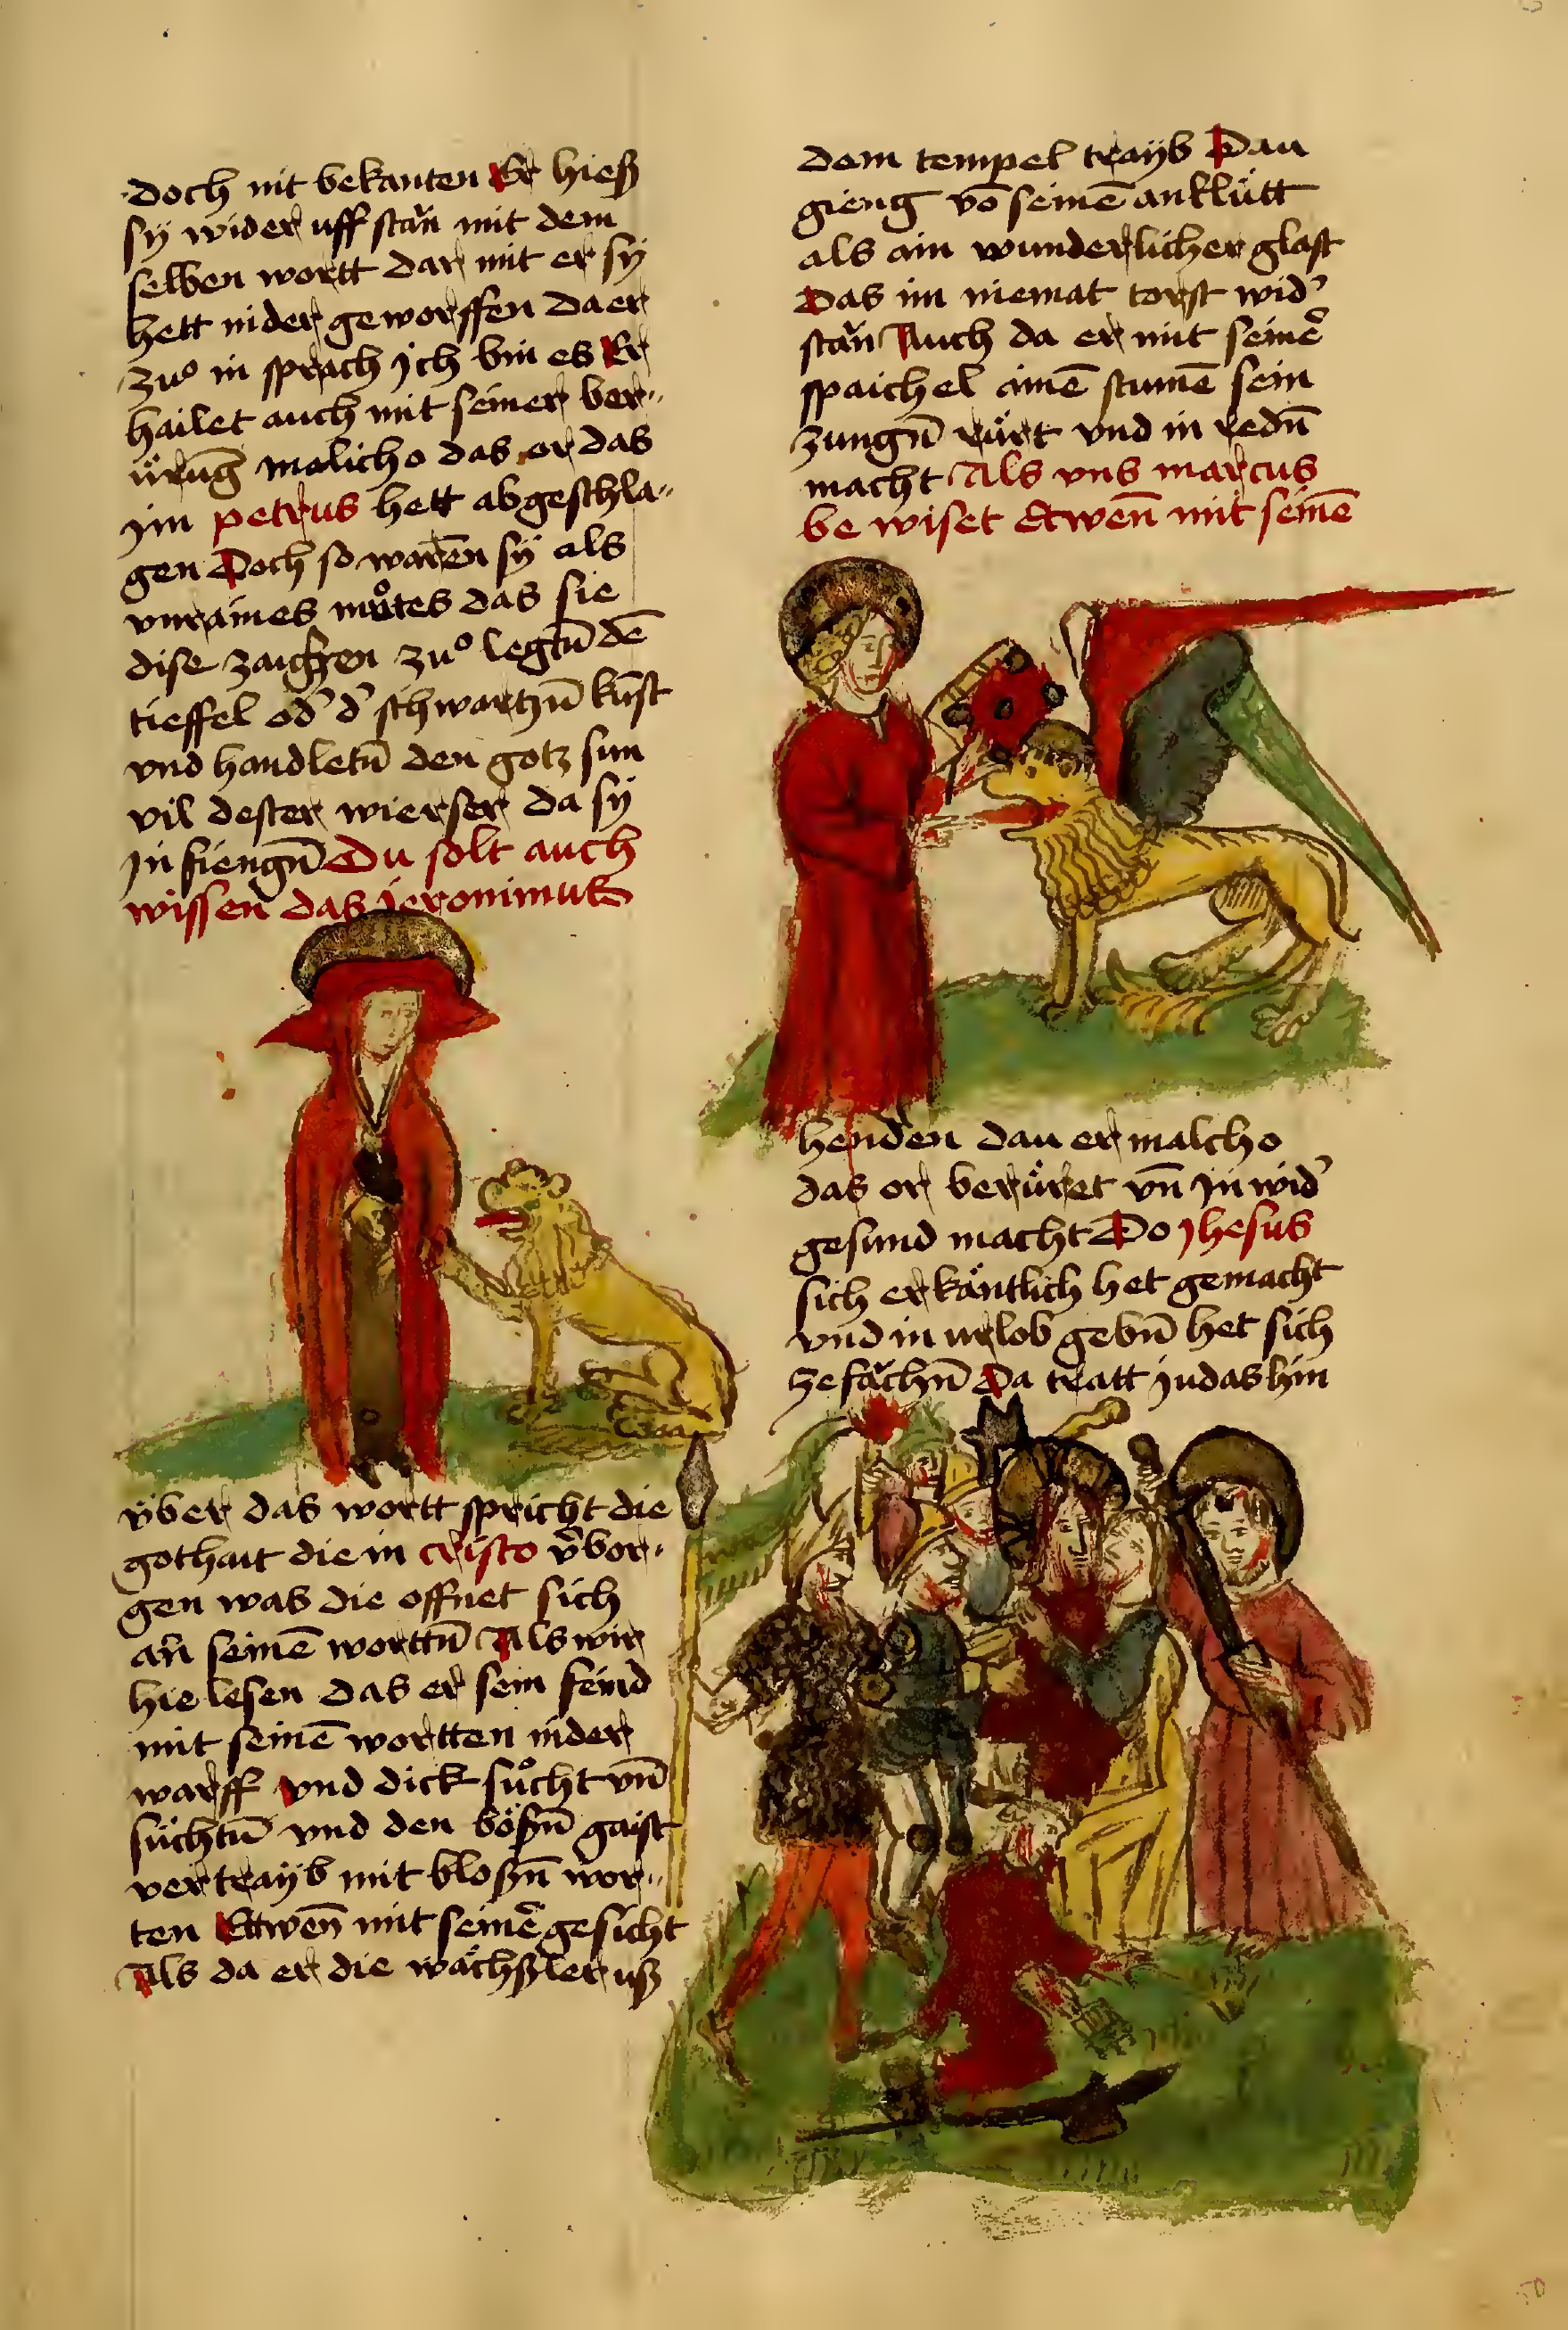 doch nit bekanten Er hieß
sÿ wider uff stän mit dem
selben wortt dar mit er sÿ
hett nider geworffen da er
zuͦ in sprach jch bin es Er
hailet auch mit seiner ber„
üͤrūg malicho das or das
jm petrus hett abgeschla„
gen Doch so waren sÿ als
vnraines muͦtes das sie
dise zaichen zuͦ legtn̄ dē
tieffel od̕ d̕ schwartzn̄ kūst
vnd handletn̄ den gotz sun
vil dester wierser da sÿ
jn fiengn̄ Du solt auch
wissen das jeronimus
v̈ber das wortt spricht die
gothait die in cristo v̕bor„
gen was die offnet sich
an seinē worttn̄ Als wir
hie lesen das er sein feind
mit seinē wortten nider
warff vnd dick suͦcht vn̄
süchtn̄ vnd den bößn̄ gaist
vertraÿb mit bloßn̄ wor„
ten Ettwen̄ mit seinē gesicht
Als da er die wächßler uß
dem tempel traÿb Dan
gieng vō seinē antlütt
als ain wunderlicher glast
Das im niemat torst wid̕
stän Auch da er mit seinē
spaichel ainē stumē sein
zungn̄ rürt vnd in redn̄
macht Als vns marcus
be wiset Etwen̄ mit seinē
henden dan er malcho
das or berüret vn̄ jn wid̕
gesund macht Do jhesus
sich erkäntlich het gemacht
vnd in urlob gebn̄ het sich
ze fächn̄ Da tratt judas hin